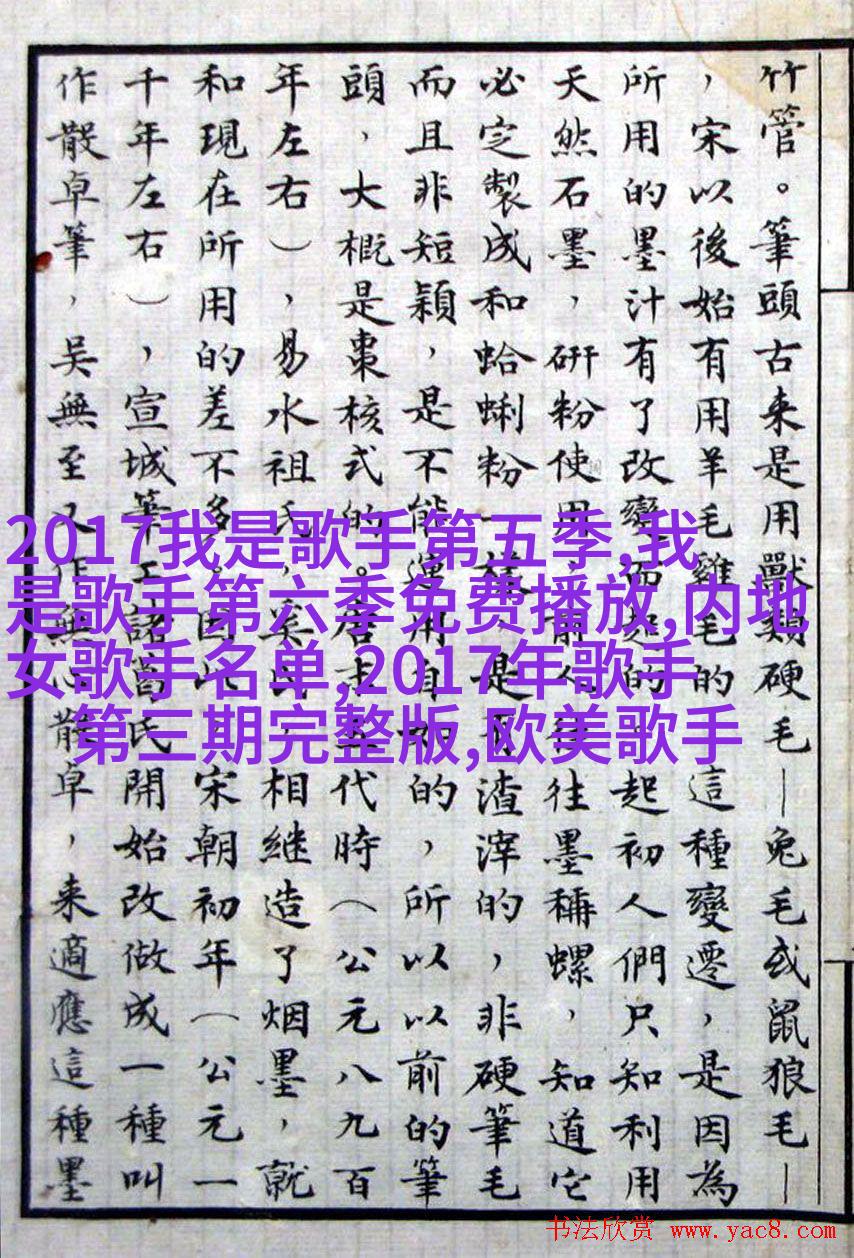 竹管。筆頭古来是用獸類硬毛—兔毛或鼠狼毛—
，宋以後始有用羊毛雞毛的 這種變遷，是因為
所用的墨汁有了改變而起的 起初人們只知利用
天然石墨，研粉使用，前人 往往墨稱螺，知道它
必定製成和蛤蜊粉一樣，是有渣滓的，非硬筆毛
而且非短穎，是不能運用自如的，所以以前的筆
頭，大概是棗核式的。唐末五代時（公元八九百
年左右），易水祖氏，奚氏，相継造了烟墨，就
和現在所用的差不多。因此，宋朝初年（公元一
千年左右），宣城筆工諸葛氏開始改做成一種叫
作散卓筆，吳無至又作無心散卓，来適應這種墨
2017我是歌手第五季,我
是歌手第六季免费播放,内地
女歌手名单,2017年歌手
第三期完整版,欧美歌手
书法欣赏 www.yac8.com